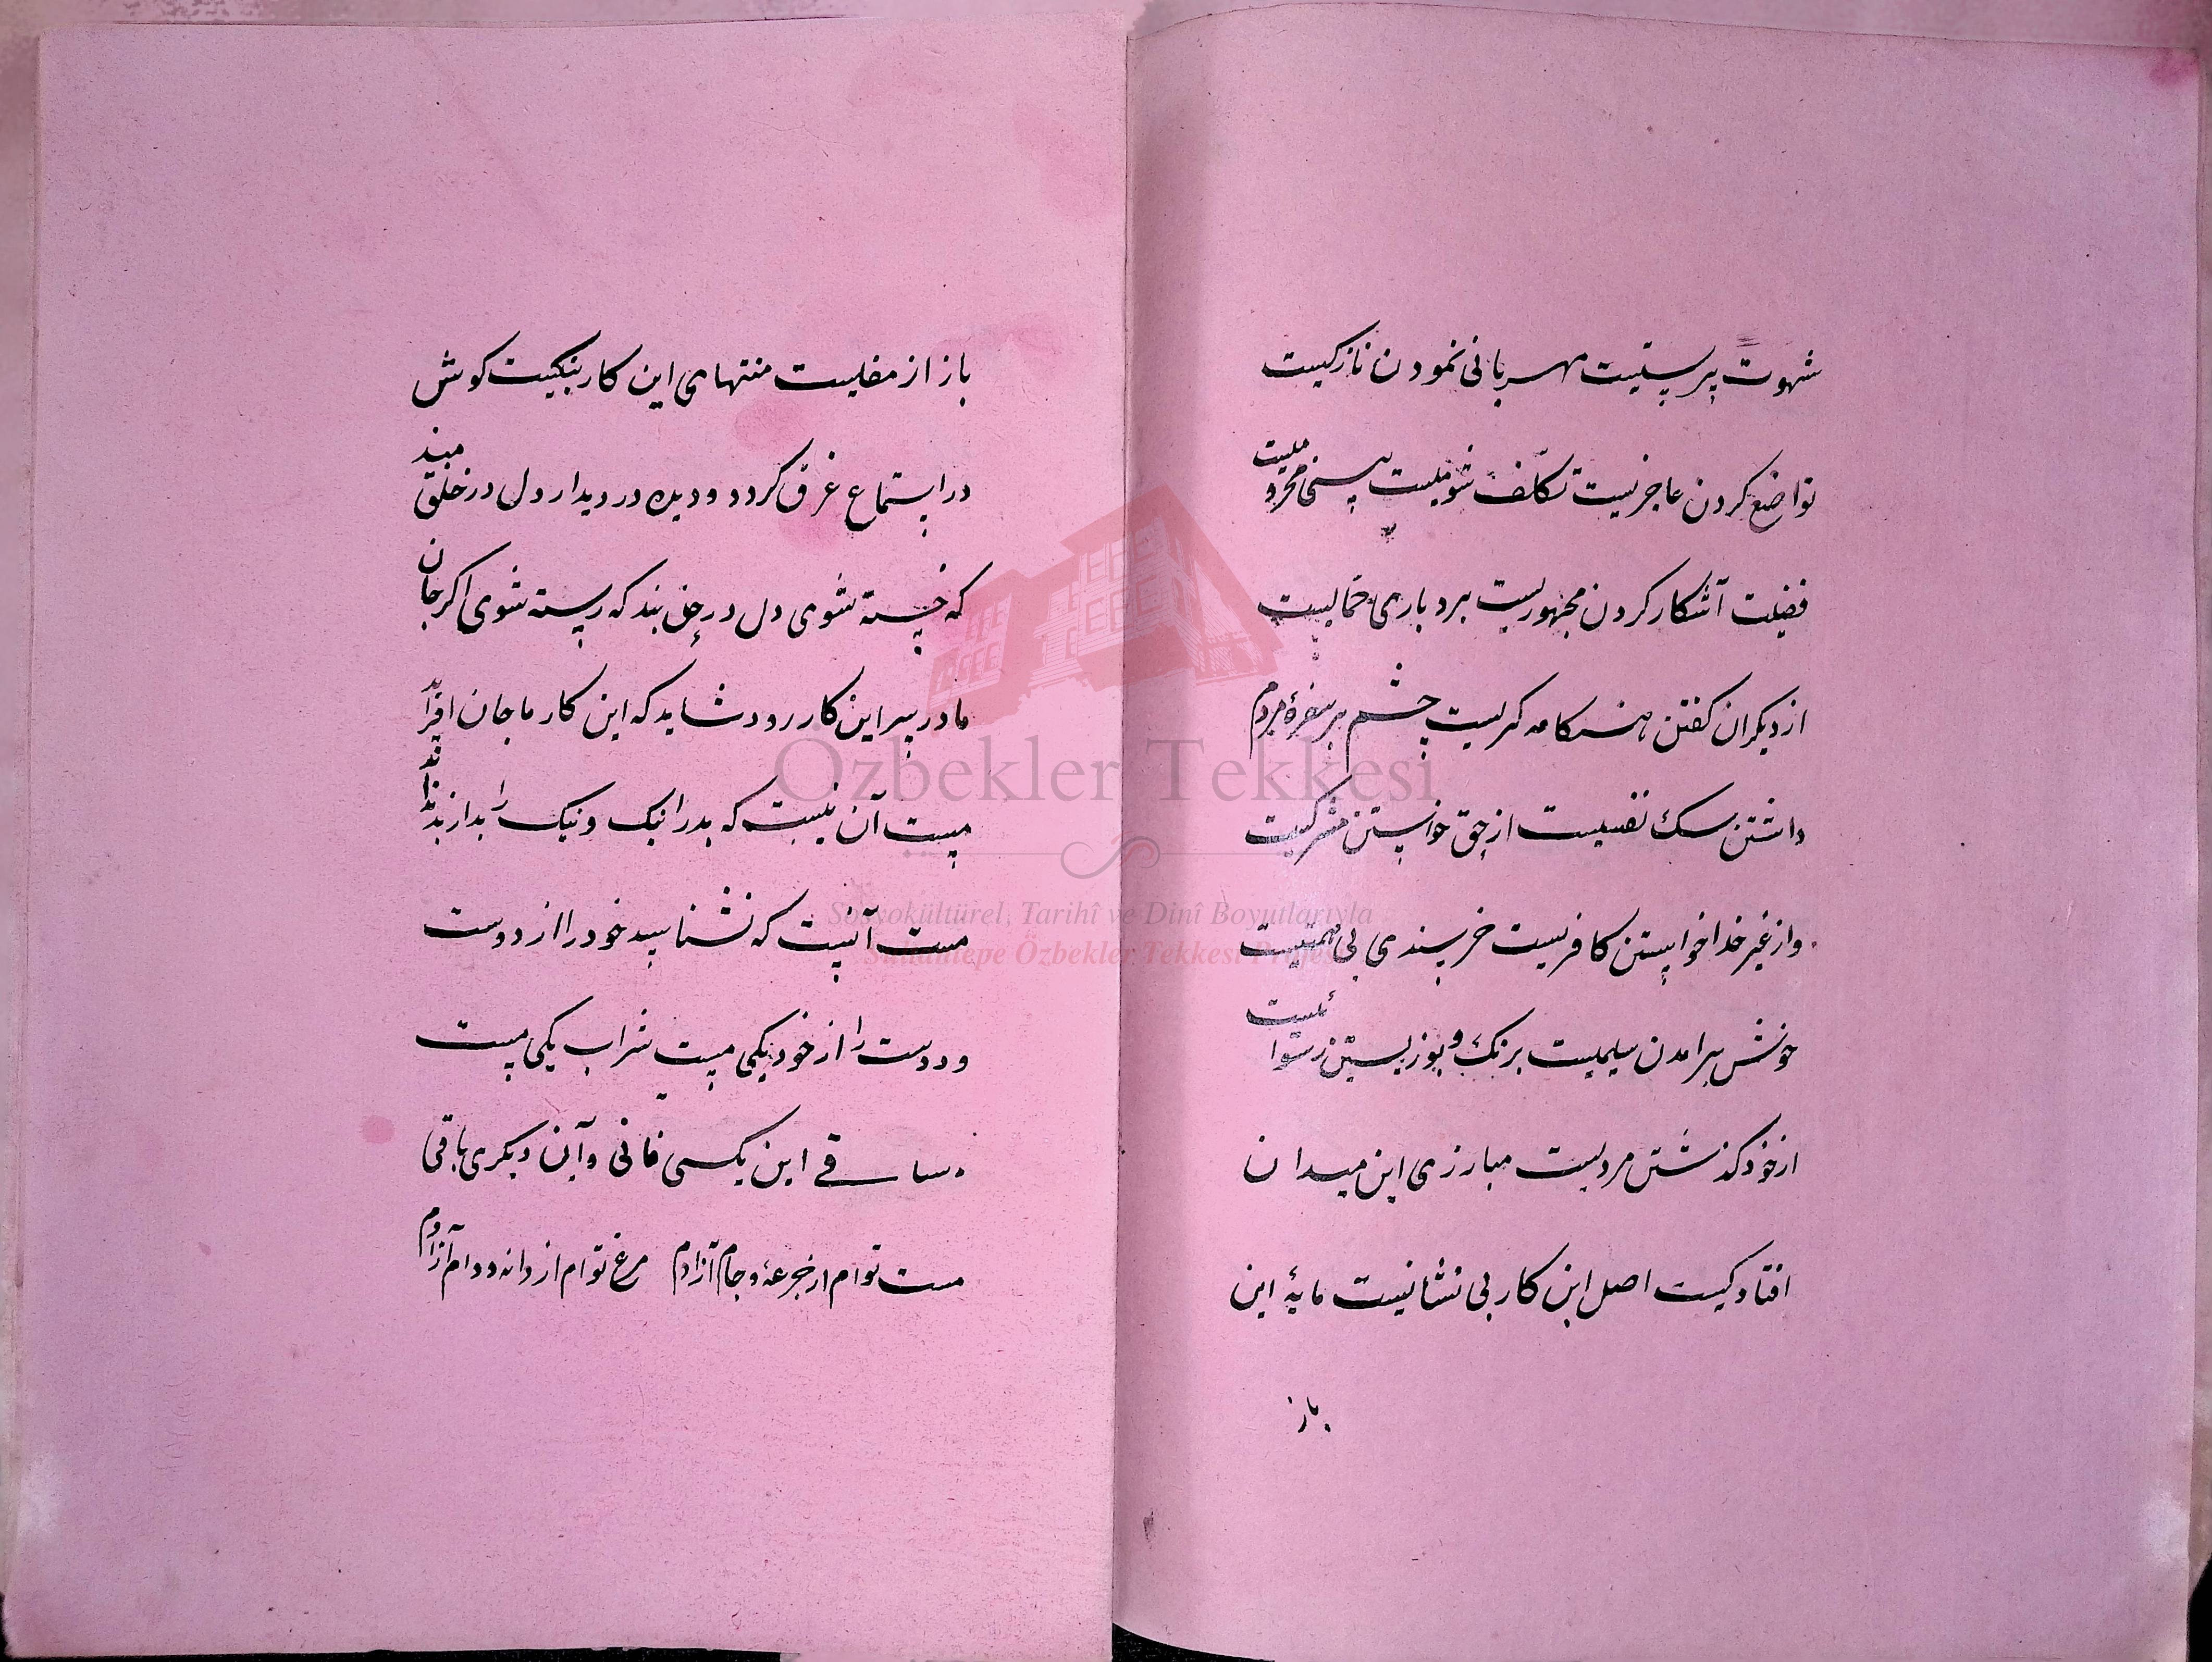 شهوت پرستیست مهربانی نمودن نازکیست
تواضع کردن عاجزیست تکلف شومیست سخن محرومیست
فضیلت آشکار کردن مجهوریست بردباری حمالیست
از دیکران کفتن هنکامه کریست چشم بر سفرۀ مردم
داشتن سک نفسیست از حق خواستن مشرکیست
و از غیر خدا خواستن کافریست خرسندی بی همتیست
خوش برامدن سلیمیست برنک و بو زیستن رسوائیست
از خود کذشتن مردیست مبارزی این میدان
افتادکیست اصل این کار بی نشانیست مایۀ این
باز
باز از مفلیست منتهای این کار نیکیست کوش
در استماع غرق کردد و دیده در دیدار دل در خلق مبند
که خسته شوی دل در حق بند که رسته شوی اکر جان
ما در سر این کار رود شاید که این کار ما جان افزاید
مست آن نیست که بد را نیک و نیک را بد از بد نداند
مست آنست که نشناسد خود را از دوست
و دوست را از خود یکی مست شراب یکی مست
ساقی این یکی فانی و آن دیکری باقی
مست توام از جرعۀ و جام آزادم مرغ توام از دانه و دام آزادم
Özbekler Tekkesi
Sosyokültürel, Tarihî ve Dinî Boyutlarıyla
Sultantepe Özbekler Tekkesi Projesi